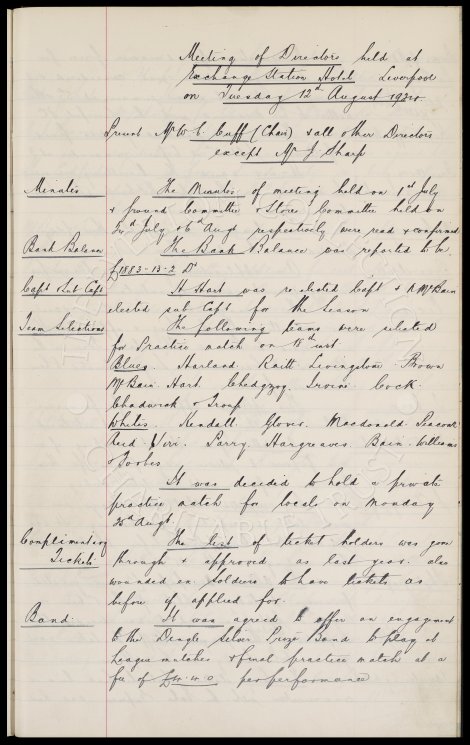 Meeting of Directors held at
Exchange Station Hotel Liverpool
on Tuesday 12th August 1924.
Present Mr W. C. Cuff (Chair) & all other Directors
except Mr J. Sharp
Minutes The Minutes of meeting held on 1st July
& Ground Committee & Stores Committee held on
July & 6th Augt respectively were read & confirmed
Bank Balance The Bank Balance was reported to be
£1883-13-2 Dr
Capt & Sub Capt H Hart was re-elected Capt & N McBain
elected sub Capt for the Season
Team Selections The following teams were selected
for Practice match on 18th inst
Blues. Harland Raitt Livingstone Brown
McBain Hart Chedgzoy. Irvine Cock.
Chadwick & Troup
Whites, Kendall Glover. Macdonald Peacock
Reid Virr. Parry. Hargreaves. Bain. Williams
& Forbes
It was decided to hold a private
practice match for locals on Monday
25th Augt.
Complimentary Tickets The list of ticket holders was gone
through & approved as last year. also
wounded ex. soldiers to have tickets as
before if applied for.
Band. It was agreed to offer an engagement
to the Dingle Silver Prize Band to play at
League matches & final practice match at a
fee of £4.4.0 per performance